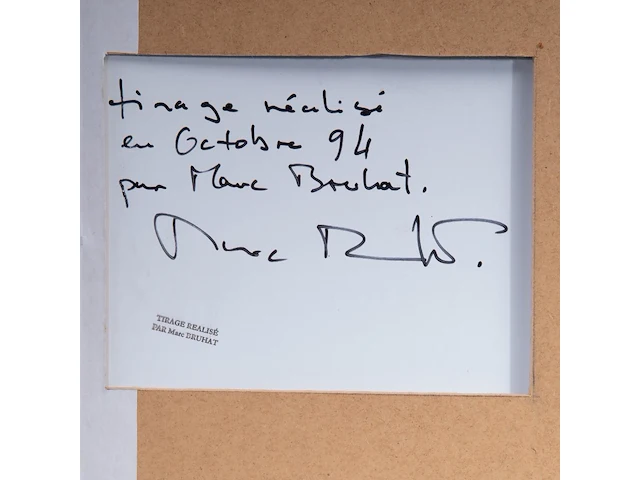 tirage réalisé
en Octobre 94
par Marc Bruhat.
Marc Bruhat.
TIRAGE REALISÉ
PAR Marc BRUHAT